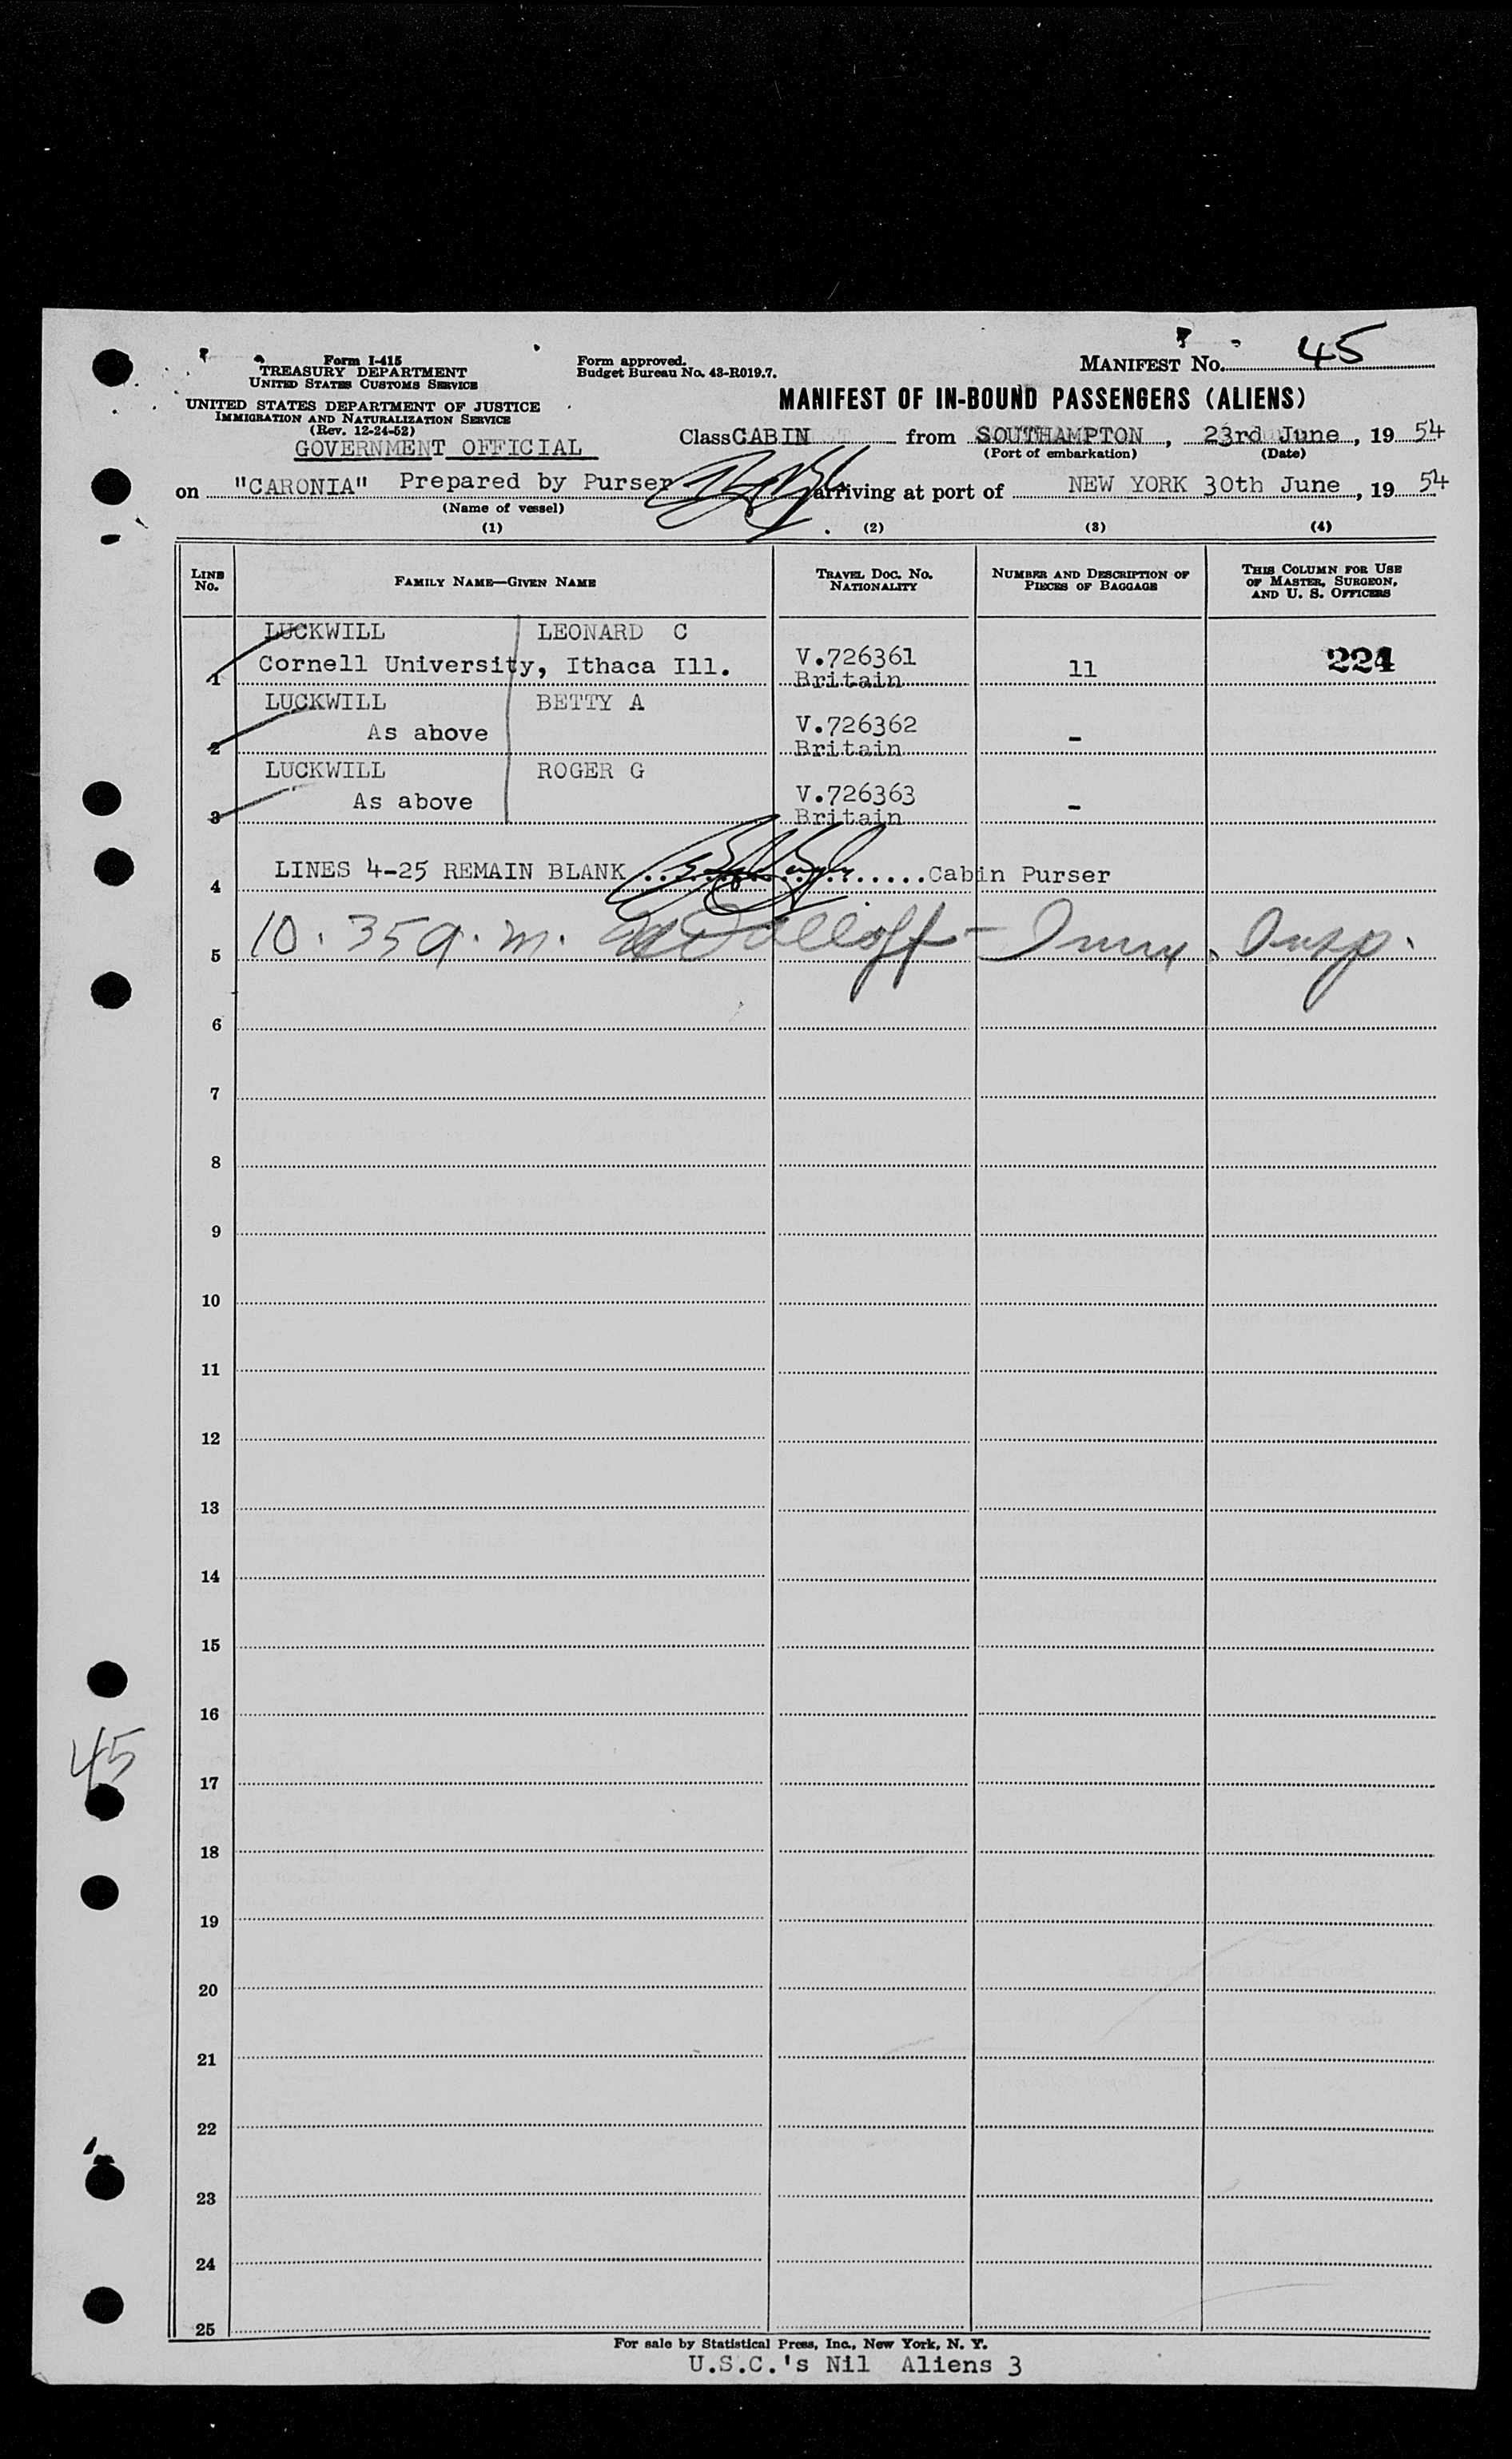 Form I-415
TREASURY DEPARTMENT
UNITED STATES CUSTOMS SERVICE
UNITED STATES DEPARTMENT OF JUSTICE
IMMIGRATION AND NATURALIZATION SERVICE
(Rev. 12-24-52)
GOVERNMENT OFFICIAL
Form approved.
Budget Bureau No. 43-R019.7.
MANIFEST No. 45
MANIFEST OF IN-BOUND PASSENGERS (ALIENS)
Class CABIN from SOUTHAMPTON, 23rd June, 1954
(Port of embarkation) (Date)
on "CARONIA" Prepared by Purser arriving at port of NEW YORK 30th June, 1954
(Name of vessel)
(1) (2) (3) (4)
LINE No. FAMILY NAME—GIVEN NAME TRAVEL DOC. No. NATIONALITY NUMBER AND DESCRIPTION OF PIECES OF BAGGAGE THIS COLUMN FOR USE OF MASTER, SURGEON, AND U. S. OFFICERS
LUCKWILL LEONARD C
1 Cornell University, Ithaca Ill. V.726361 Britain 11 224
LUCKWILL BETTY A
2 As above V.726362 Britain -
LUCKWILL ROGER G
3 As above V.726363 Britain -
4 LINES 4-25 REMAIN BLANK ........Cabin Purser
5 10.35 a.m. Imm. Insp.
6
7
8
9
10
11
12
13
14
15
16
45
17
18
19
20
21
22
23
24
25
For sale by Statistical Press, Inc., New York, N. Y.
U.S.C.'s Nil Aliens 3